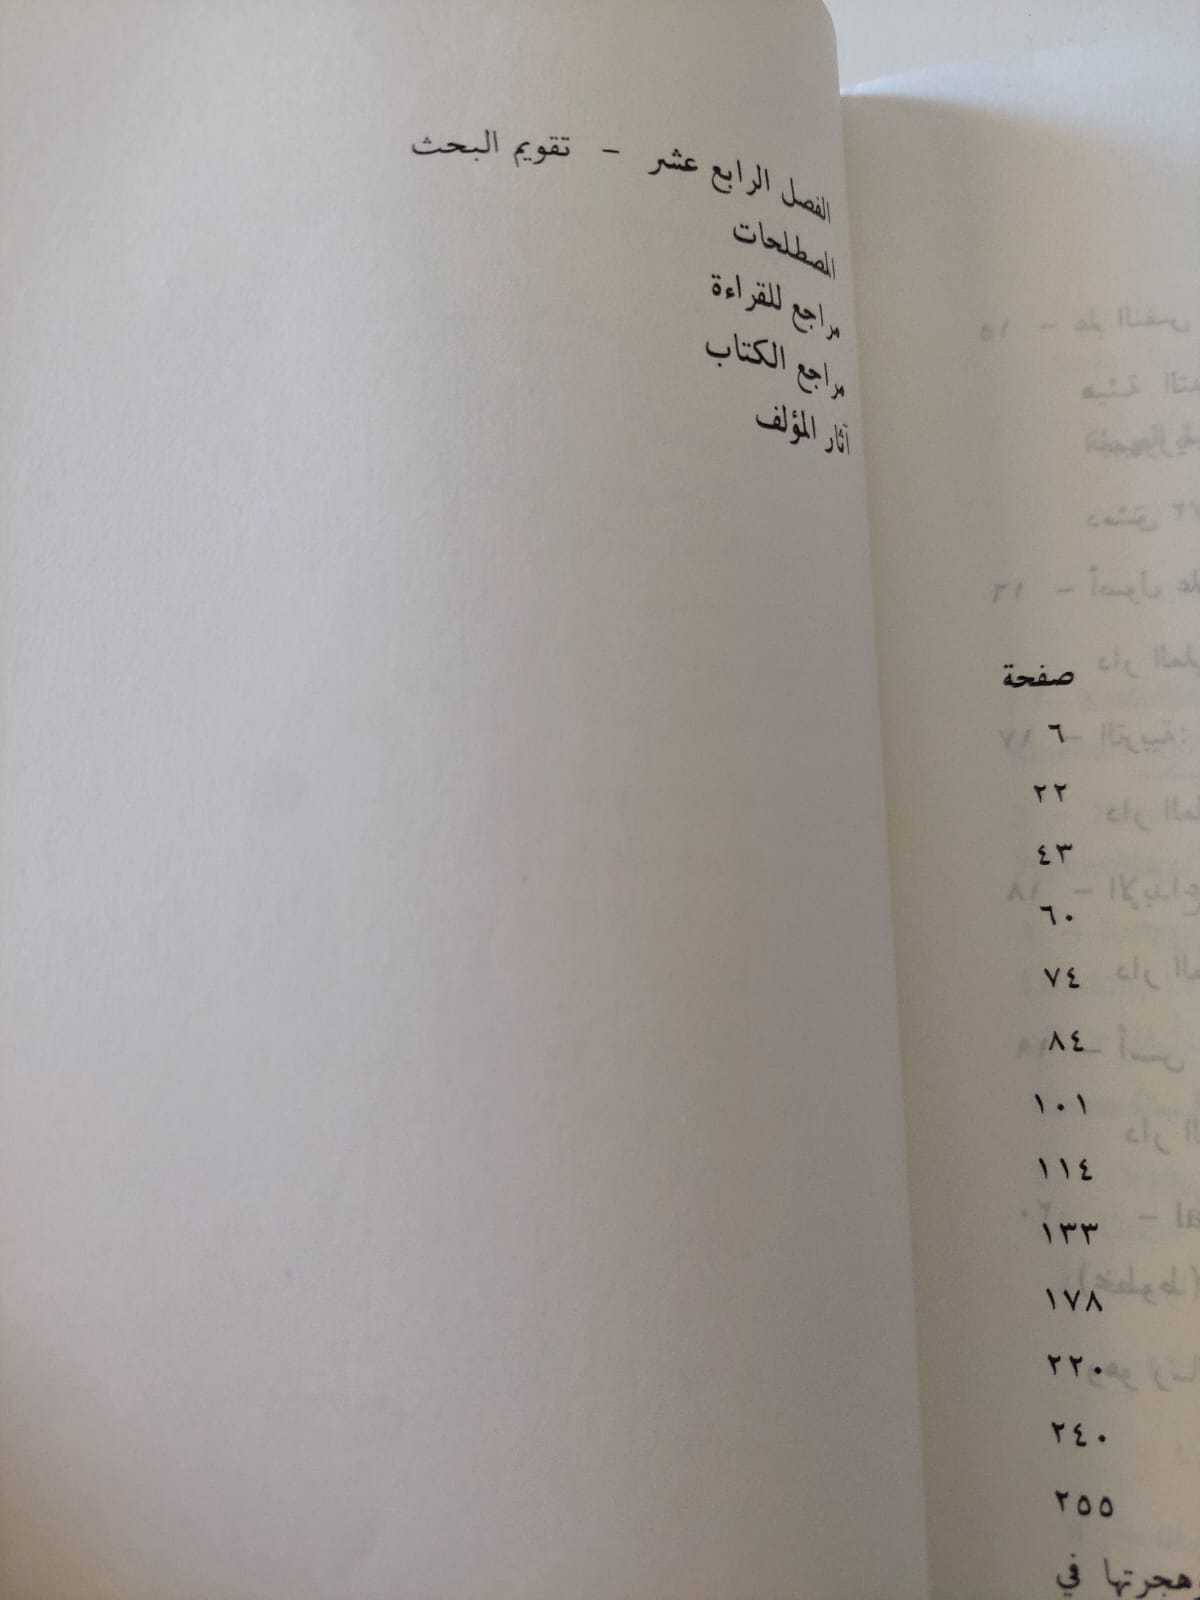 الفصل الرابع عشر - تقويم البحث
المصطلحات
مراجع للقراءة
مراجع الكتاب
آثار المؤلف
صفحة
٦
٢٢
٤٣
٦٠
٧٤
٨٤
١٠١
١١٤
١٣٣
١٧٨
٢٢٠
٢٤٠
٢٥٥
وهجرتها في